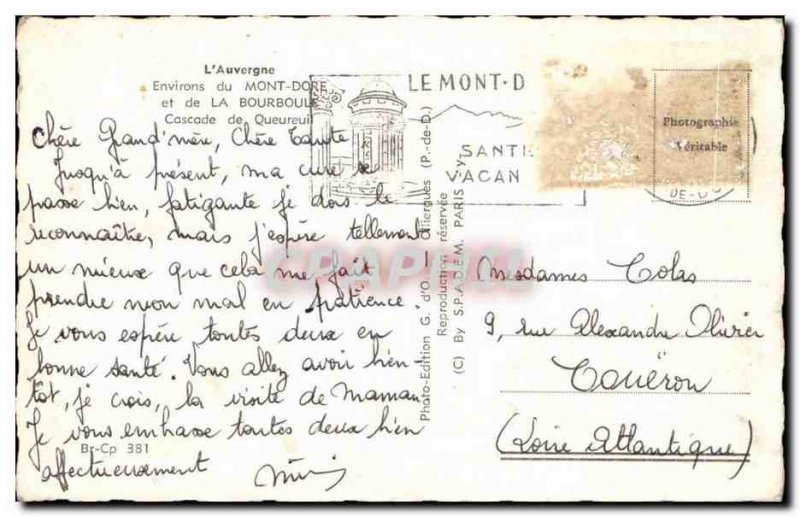 L'Auvergne
Environs du MONT-DORE
et de LA BOURBOULE
Cascade de Queureuil
LE MONT-D
SANTE
VACAN
Photographie
Véritable
Chère Grand'mère, Chère Tante
Jusqu'à présent, ma cure se
passe bien, fatigante je dois le
reconnaître, mais j'espère tellement
un mieux que cela me fait
prendre mon mal en patience.
Je vous espère toutes deux en
bonne santé. Vous allez avoir bien-
tôt, je crois, la visite de Maman.
Je vous embrasse toutes deux bien
affectueusement
Br-Cp 381
Photo-Edition G. d'O. Olliergues (P.-de-D.)
Reproduction réservée
(C) By S.P.A.D.E.M. PARIS
Mesdames Colas
9, rue Alexandre Olivier
Couëron
(Loire Atlantique)